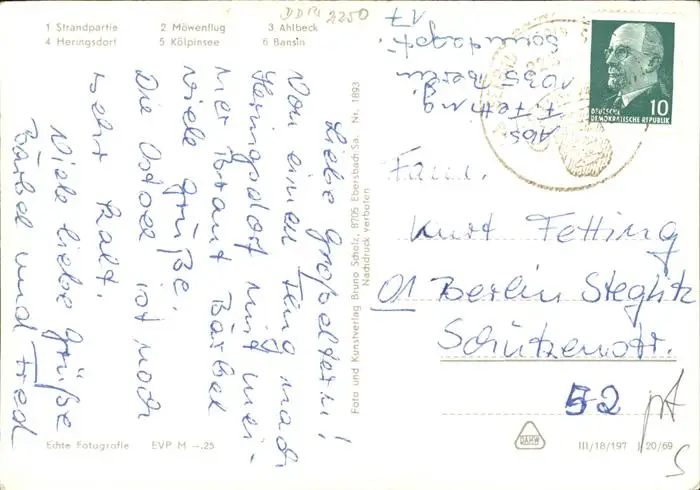 DDR 2250
1 Strandpartie 2 Möwenflug 3 Ahlbeck
4 Heringsdorf 5 Kölpinsee 6 Bansin
Liebe Großeltern!
Von einem Ttrip nach
Heringsdorf mit mei-
ner Braut Bärbel
viele Grüße.
Die Ostsee ist noch
sehr kalt.
Viele liebe Grüße
Bärbel und Fred
Echte Fotografie EVP M –.25
Foto und Kunstverlag Bruno Scholz, 8705 Ebersbach/Sa. Nr. 1893
Nachdruck verboten
Abs.
F. Fetting
1035 Berlin
17
DEUTSCHE
DEMOKRATISCHE REPUBLIK
10
Fam.
Kurt Fetting
01 Berlin Steglitz
Schützenstr.
52
DAHW
III/18/197 1 20/69